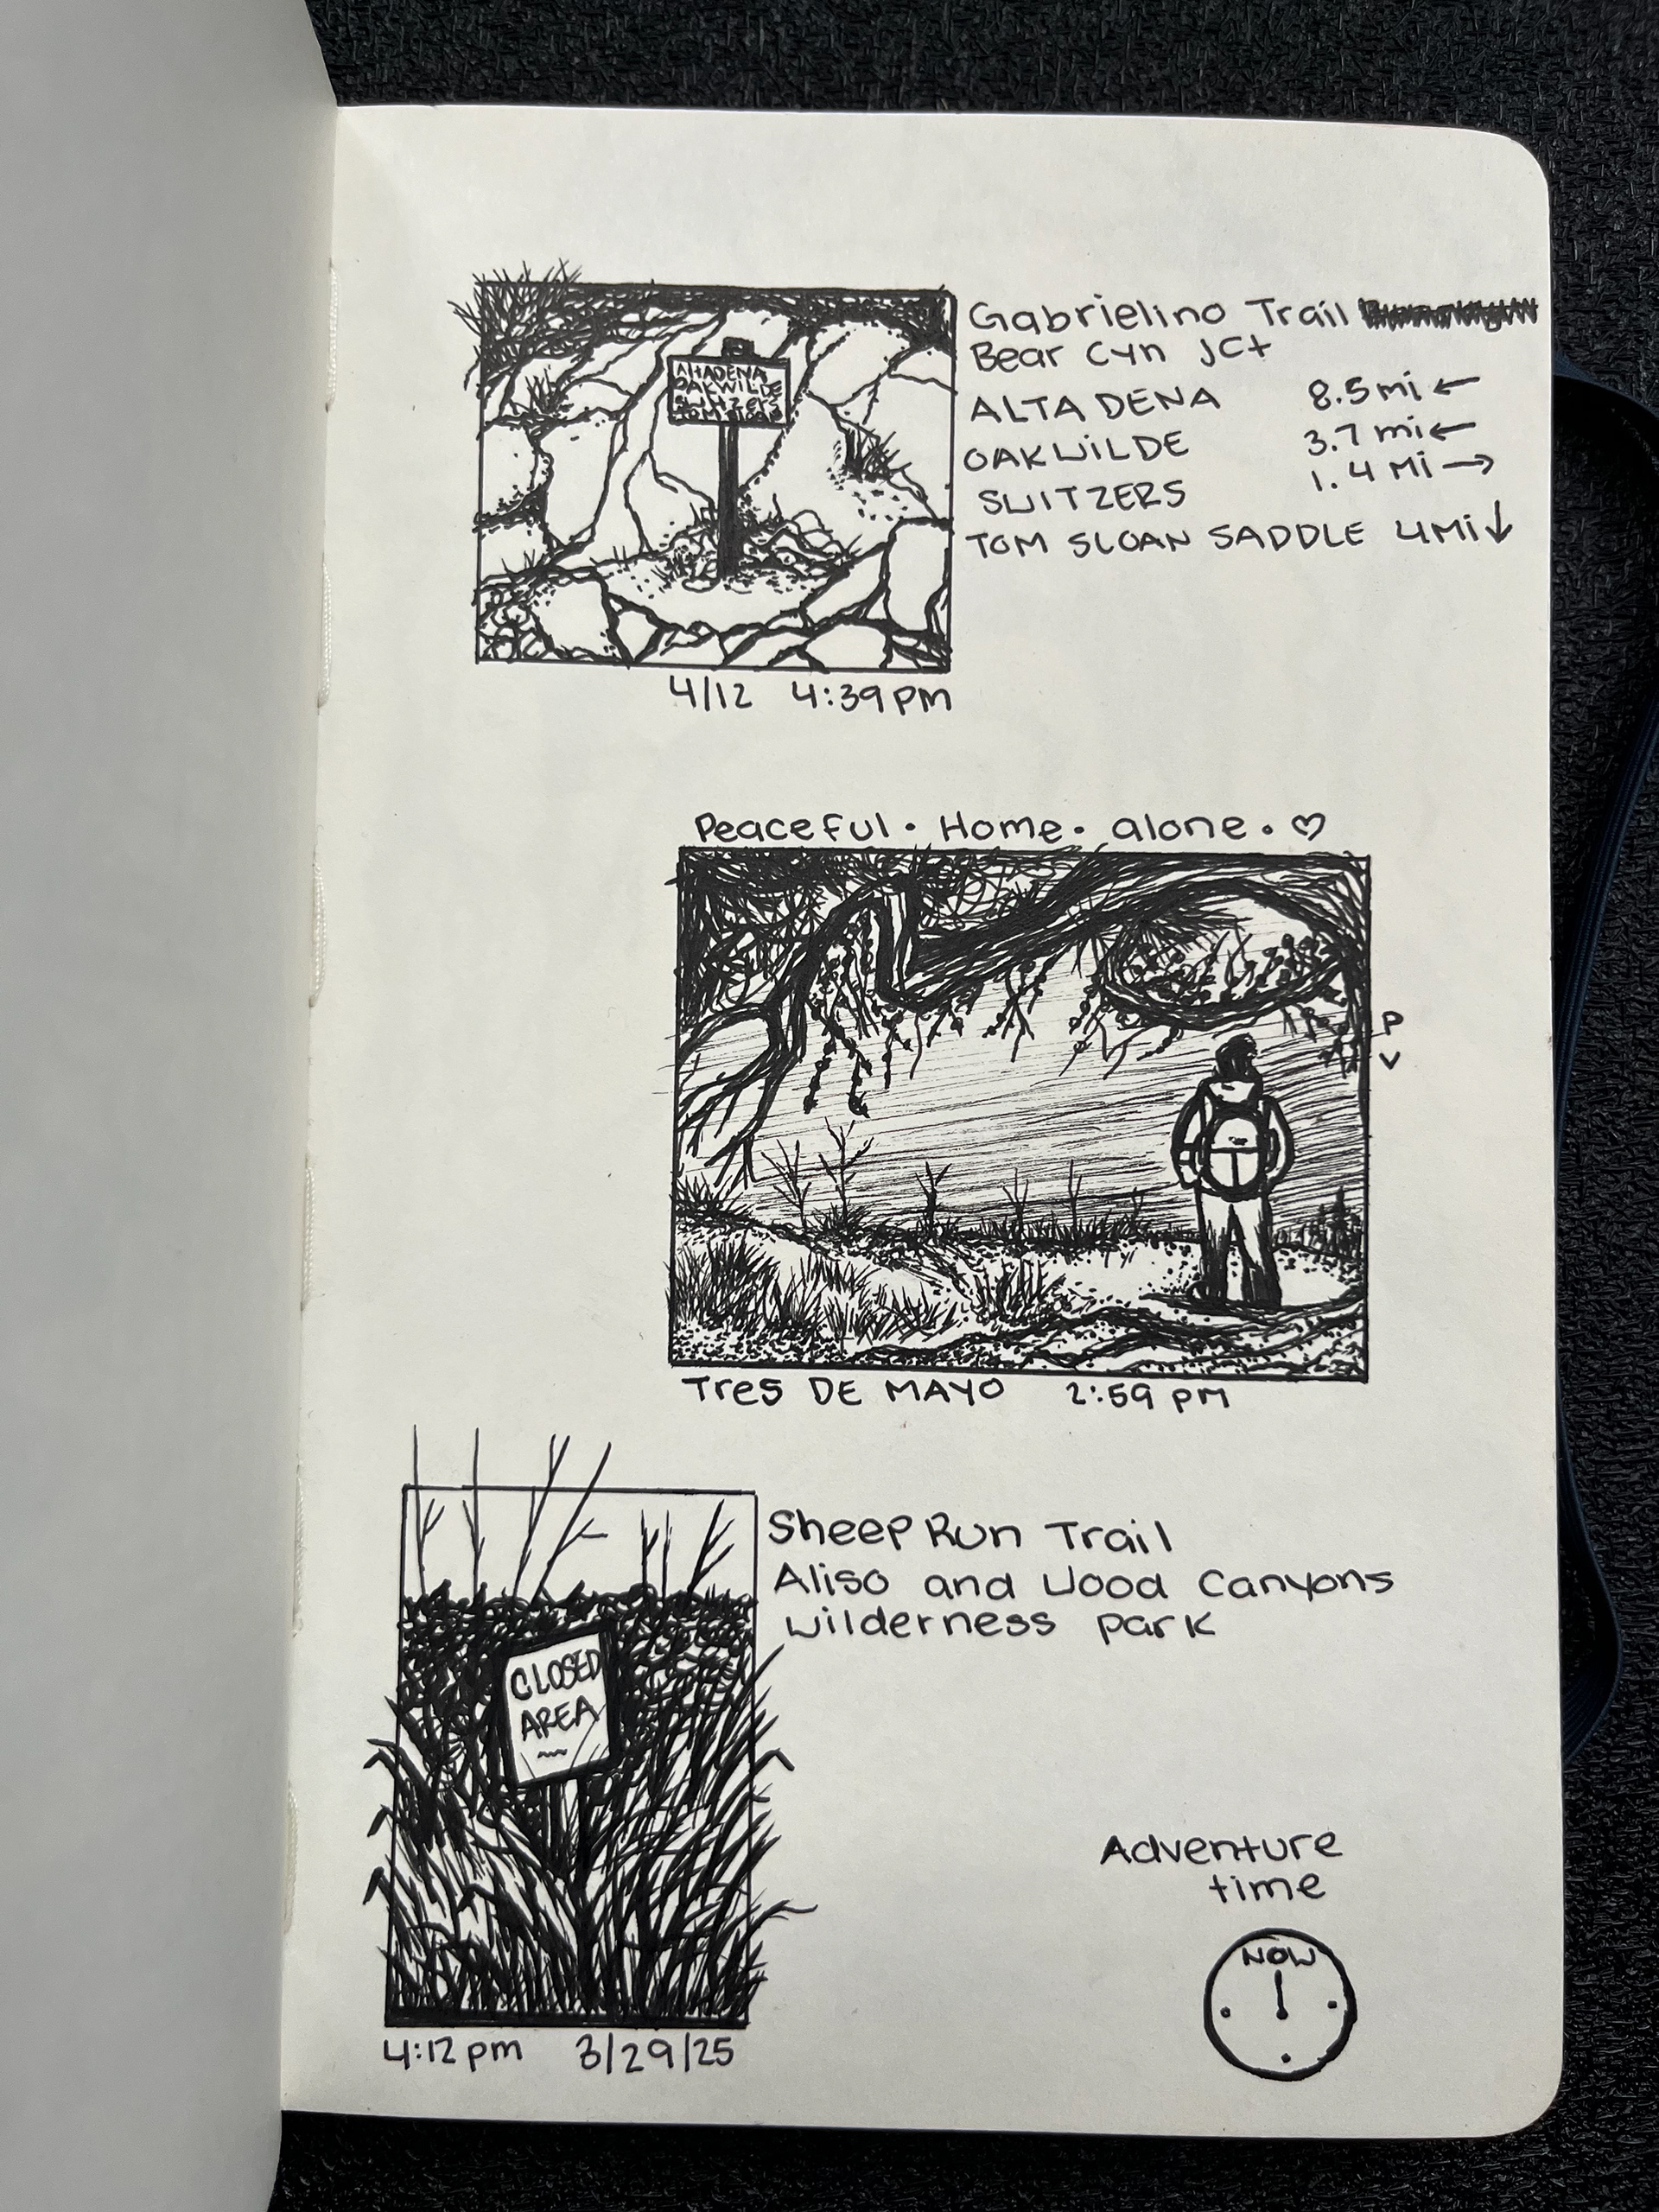 Gabrielino Trail
Bear Cyn Jct
ALTADENA 8.5mi ←
OAKWILDE 3.7 mi ←
SWITZERS 1.4 Mi →
TOM SLOAN SADDLE 4Mi ↓
ALTADENA
OAKWILDE
SWITZERS
TOM SLOAN
4/12 4:39pm
Peaceful • Home • alone • ♡
P
V
Tres DE MAYO 2:59 pm
Sheep Run Trail
Aliso and Wood Canyons
Wilderness park
CLOSED
AREA
4:12pm 3/29/25
Adventure
time
NOW